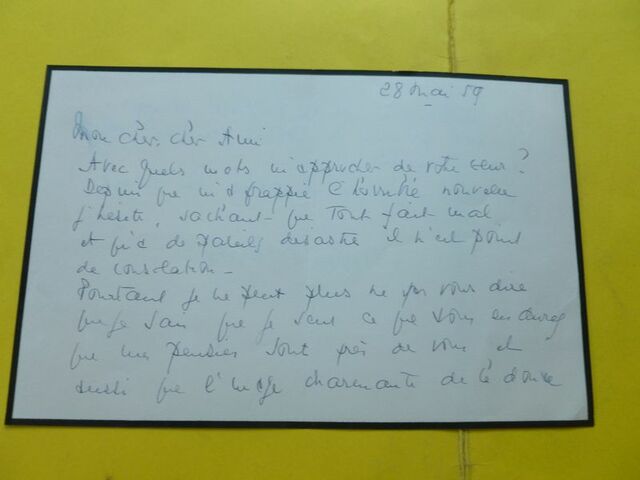 28 mai 59
Mon cher, cher Ami
Avec quels mots m'approcher de votre cœur ?
Depuis que m'a frappée l'horrible nouvelle
j'hésite, sachant que tout fait mal
et qu'à de pareils désastres il n'est point
de consolation -
Pourtant je ne peux plus ne pas vous dire
que je sais que je sens ce que vous endurez
que mes pensées sont près de vous et
aussi que l'image charmante de la douce